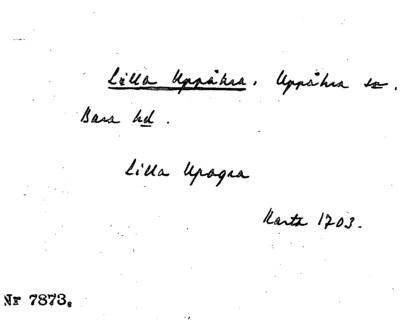 Lilla Uppåkra. Uppåkra sn.
Bara hd.
Lilla Upagra
Karta 1703.
Nr 7873.